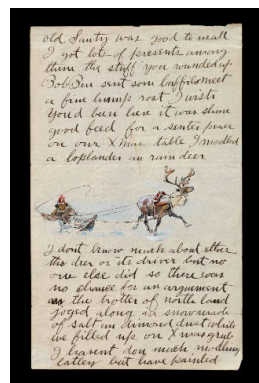 old Santy was good to us all
I got lots of presents among
them the stuff you rounded up
Bob Ben sent som buffalo meet
a fine hump rost I wish
you'd been here it was shure
good feed for a senter
on our X mas table I modled
a loplander in raindeer
I dont know much about ether
this deer or its driver but no
one else did so there was
no chance for an arguement
as the trotter of north land
joged along in snow made
of salt an dimond dust while
we filled up on X mas grub
I havent don much modling
latley but have painted